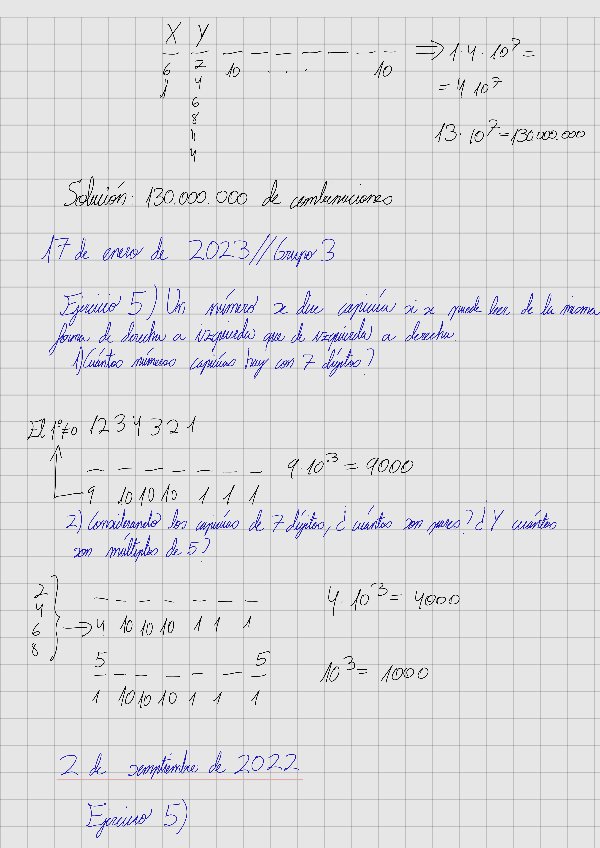 X Y
6 2 10 . . . 10 ⇒ 1·4·10⁷ =
1 4 = 4 10⁷
6
8 13·10⁷ = 130.000.000
4
Solución: 130.000.000 de combinaciones
17 de enero de 2023 // Grupo 3
Ejercicio 5) Un número se dice capicúa si se puede leer de la misma
forma de derecha a izquierda que de izquierda a derecha.
1) ¿Cuántos números capicúas hay con 7 dígitos?
El 1º ≠ 0 1 2 3 4 3 2 1
9·10³ = 9000
9 10 10 10 1 1 1
2) Considerando los capicúas de 7 dígitos, ¿cuántos son pares? ¿Y cuántos
son múltiplos de 5?
2
4
6
8
4 10 10 10 1 1 1 4·10³ = 4000
5 5
1 10 10 10 1 1 1 10³ = 1000
2 de septiembre de 2022
Ejercicio 5)